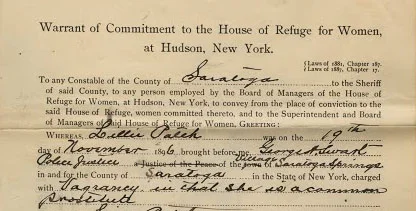 Warrant of Commitment to the House of Refuge for Women,
at Hudson, New York.
{ Laws of 1881, Chapter 187.
{ Laws of 1887, Chapter 17.
To any Constable of the County of Saratoga to the Sheriff
of said County, to any person employed by the Board of Managers of the House of
Refuge for Women, at Hudson, New York, to convey from the place of conviction to the
said House of Refuge, women committed thereto, and to the Superintendent and Board
of Managers of said House of Refuge for Women, GREETING:
WHEREAS, Lillie was on the 19th
day of November 1896, brought before me, George H.
Police Justice a Justice of the Peace of the town of Village Saratoga Springs
in and for the County of Saratoga in the State of New York, charged
with Vagrancy in that she is a common
prostitute